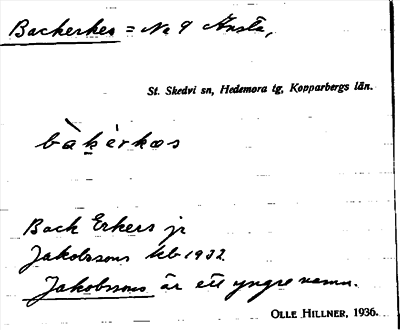 Backerkes = No 9 Ansta,
St. Skedvi sn, Hedemora tg, Kopparbergs län.
bàkèrkas
Back Erkers jr
Jakobssons kb 1932
Jakobssons är ett yngre namn.
OLLE HILLNER, 1936.